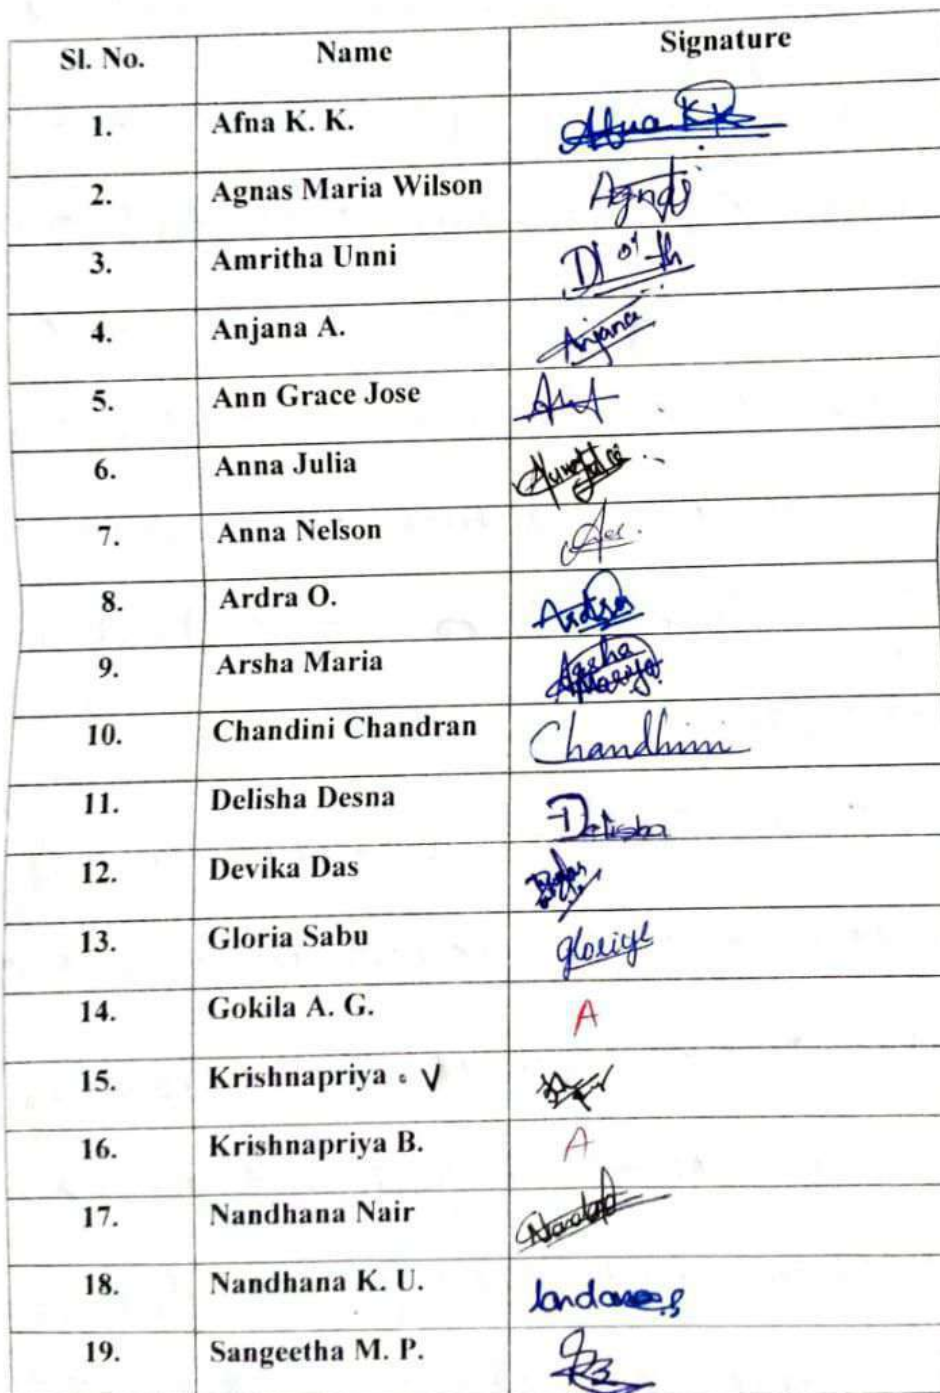 Sl. No. Name Signature
1. Afna K. K. Afna KK
2. Agnas Maria Wilson Agnas
3. Amritha Unni
4. Anjana A. Anjana
5. Ann Grace Jose
6. Anna Julia
7. Anna Nelson
8. Ardra O. Ardra
9. Arsha Maria Arsha
10. Chandini Chandran Chandhini
11. Delisha Desna Delisha
12. Devika Das
13. Gloria Sabu
14. Gokila A. G. A
15. Krishnapriya . V
16. Krishnapriya B. A
17. Nandhana Nair
18. Nandhana K. U.
19. Sangeetha M. P.